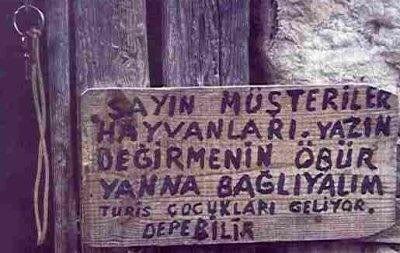 SAYIN MÜŞTERİLER
HAYVANLARI. YAZIN
DEĞİRMENİN ÖBÜR
YANNA BAĞLIYALIM
TURİS ÇOCUKLARI GELİYOR.
DEPEBİLİR